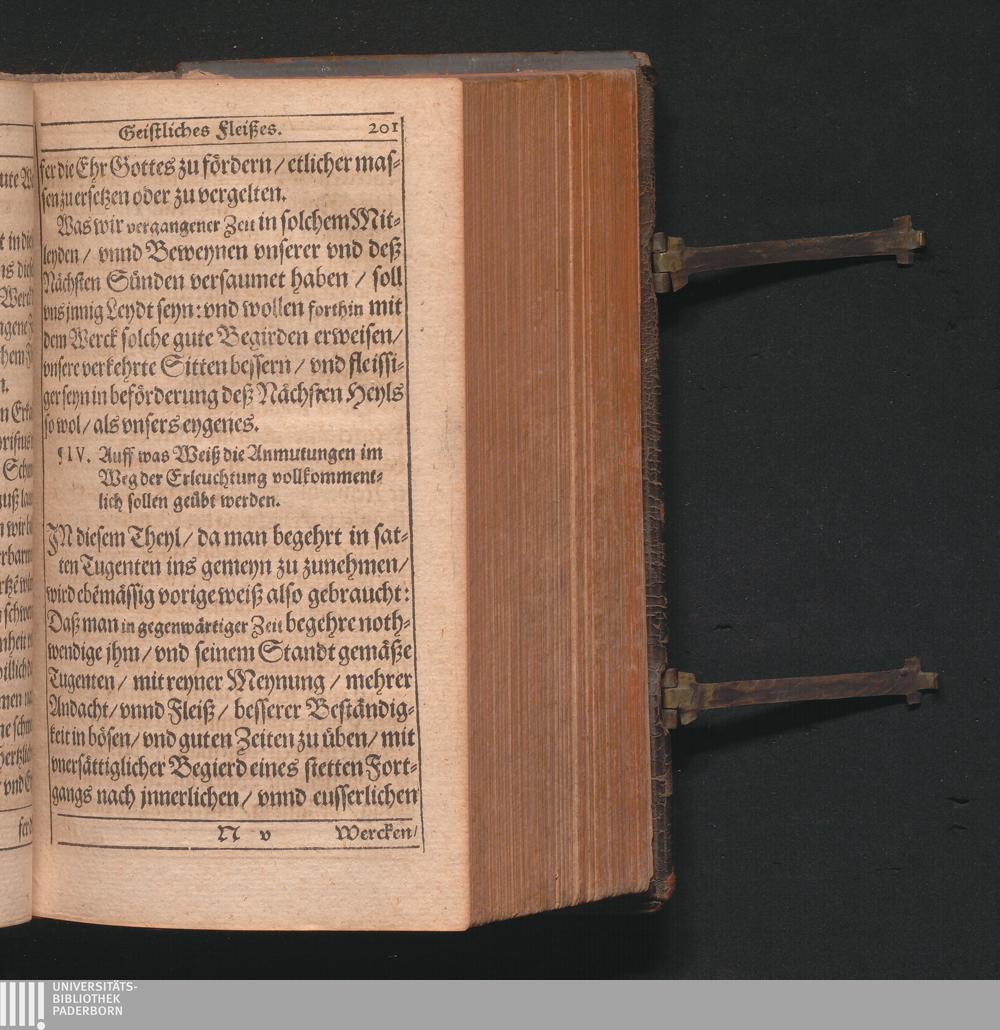 Geistliches Fleißes. 201
fer die Ehr Gottes zu fördern / etlicher mas-
sen zu ersetzen oder zu vergelten.
Was wir vergangener Zeit in solchem Mit-
leyden / vnnd Beweynen vnserer vnd deß
Nächsten Sünden versaumet haben / soll
vns jnnig Leydt seyn: vnd wollen forthin mit
dem Werck solche gute Begirden erweisen /
vnsere verkehrte Sitten bessern / vnd fleissi-
ger seyn in beförderung deß Nächsten Heyls
so wol / als vnsers eygenes.
¶ IV. Auff was Weiß die Anmutungen im
Weg der Erleuchtung vollkomment-
lich sollen geübt werden.
IN diesem Theyl / da man begehrt in sat-
ten Tugenten ins gemeyn zu zunehmen /
wird ebēmässig vorige weiß also gebraucht:
Daß man in gegenwärtiger Zeit begehre noth-
wendige jhm / vnd seinem Standt gemäße
Tugenten / mit reyner Meynung / mehrer
Andacht / vnnd Fleiß / besserer Beständig-
keit in bösen / vnd guten Zeiten zu üben / mit
vnersättiglicher Begierd eines stetten Fort-
gangs nach jnnerlichen / vnnd eusserlichen
N v Wercken /
UNIVERSITÄTS-
BIBLIOTHEK
PADERBORN